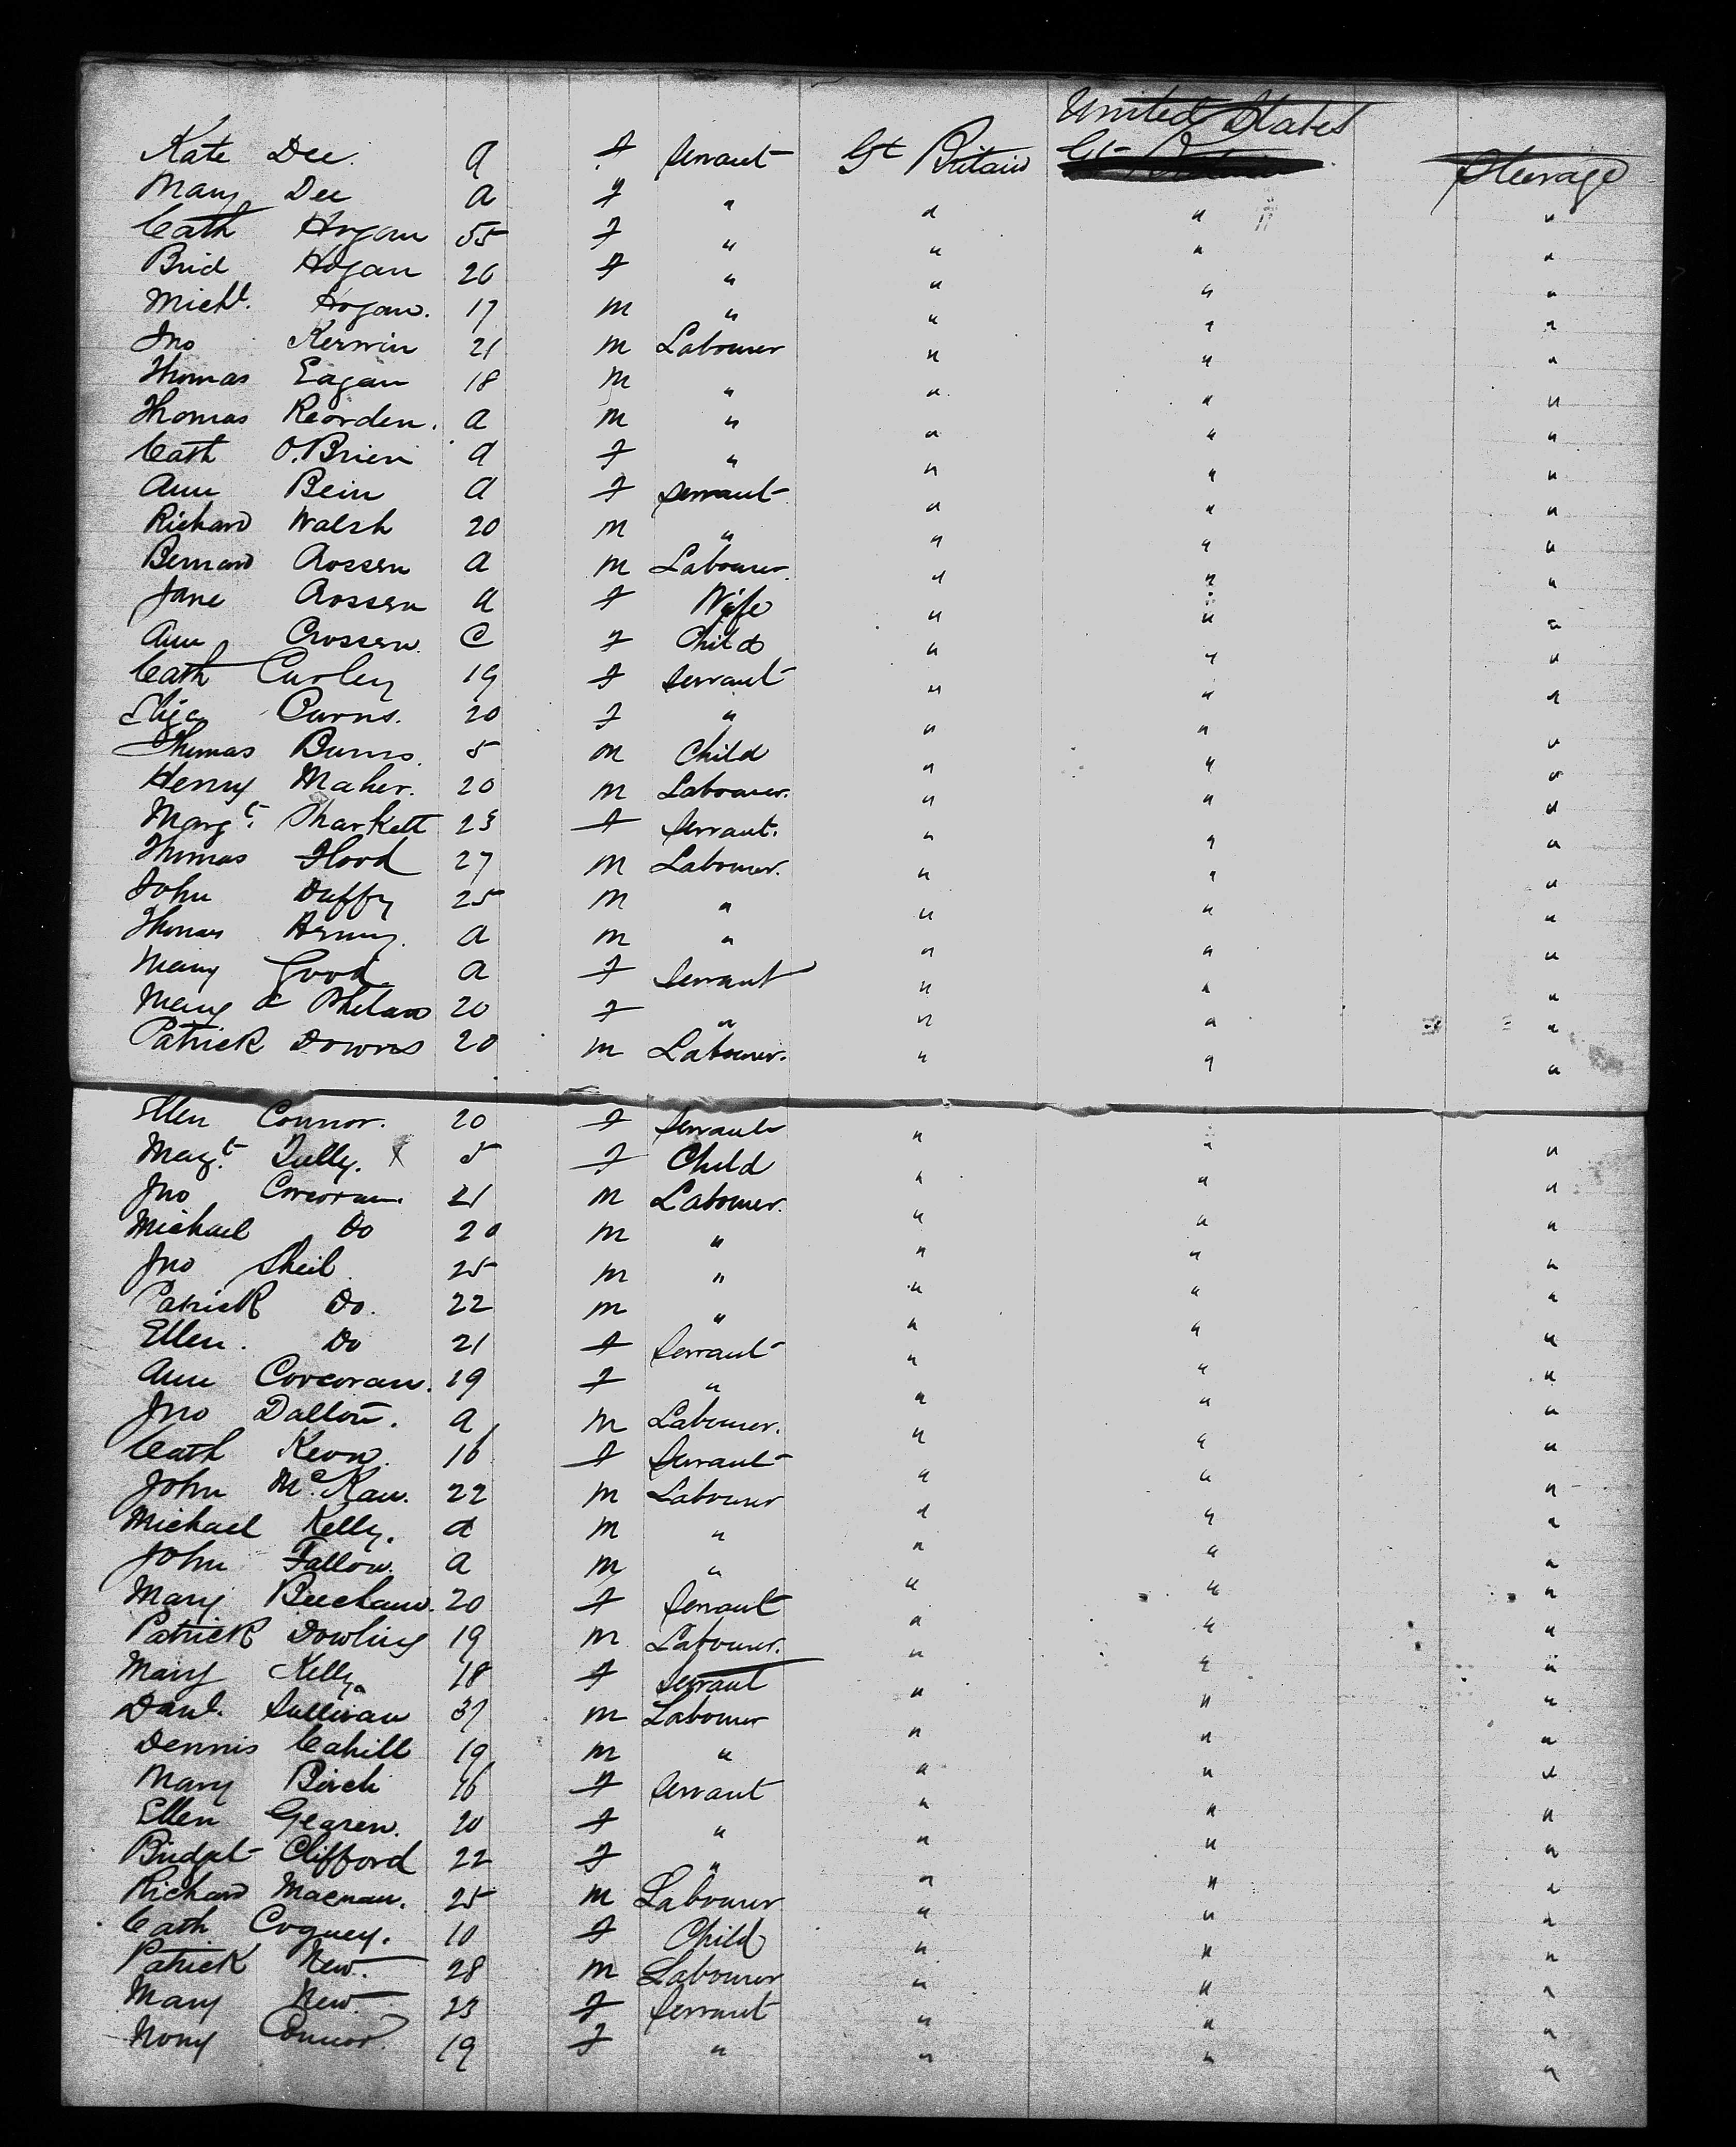 United States
Kate Dee. a f Servant Gt Britain Gt Britain Steerage
Mary Dee a f " " " "
Cath Hogan 55 f " " " "
Brid Hogan 26 f " " " "
Michl. Hogan. 17 m " " " "
Jno Kerwin 21 m Labourer " " "
Thomas Eagan 18 m " " " "
Thomas Reorden. a m " " " "
Cath O.Brien a f " " " "
Ann Bein a f Servant " " "
Richard Walsh 20 m " " " "
Bernard Crossen a m Labourer. " " "
Jane Crossen a f Wife " " "
Ann Crossen. C f Child " " "
Cath Curley 19 f Servant " " "
Eliza Burns. 20 f " " " "
Thomas Burns. 5 m Child " " "
Henry Maher. 20 m Labourer. " " "
Margt. Sharkett 23 f Servant. " " "
Thomas Flood 27 m Labourer. " " "
John Duffy 25 m " " " "
Thomas a m " " " "
Mary Good a f Servant " " "
Mary a Phelan 20 f " " " "
Patrick Downs 20 m Labourer. " " "
Ellen Connor. 20 f Servant " " "
Magt. Tully. x 5 f Child " " "
Jno Corcoran. 21 m Labourer. " " "
Michael Do 20 m " " " "
Jno Sheil 25 m " " " "
Patrick Do. 22 m " " " "
Ellen. Do 21 f Servant " " "
Ann Corcoran. 19 f " " " "
Jno Dalton. a m Labourer. " " "
Cath Keon. 16 f Servant " " "
John McKan. 22 m Labourer " " "
Michael Kelly. a m " " " "
John Fallon. a m " " " "
Mary Beecham. 20 f Servant " " "
Patrick Dowling 19 m Labourer. " " "
Mary Kelly. 18 f Servant " " "
Danl. Sullivan 37 m Labourer " " "
Dennis Cahill 19 m " " " "
Mary Birch 16 f Servant " " "
Ellen Gearen. 20 f " " " "
Bridget Clifford 22 f " " " "
Richard Macnan. 25 m Labourer " " "
Cath Cogney. 10 f Child " " "
Patrick New. 28 m Labourer " " "
Mary New. 23 f Servant " " "
Nony Connor. 19 f " " " "